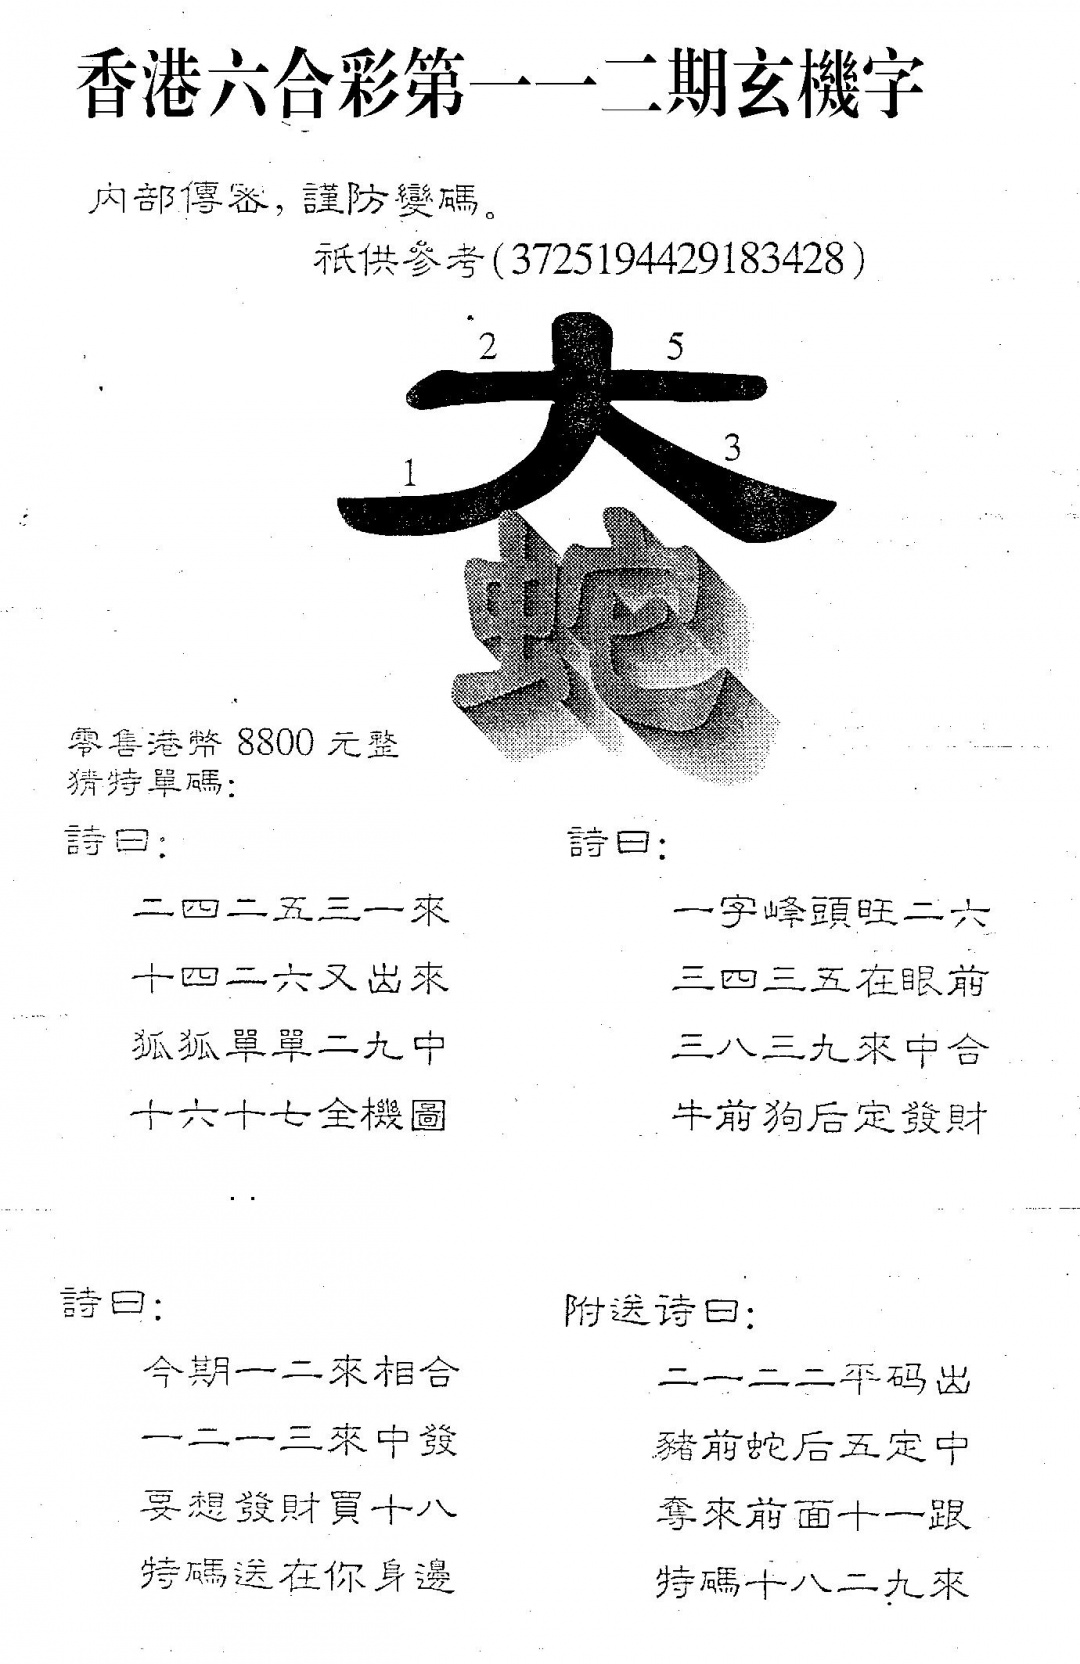 香港六合彩第一一二期玄機字
内部傳密，謹防變碼。
祇供參考(3725194429183428)
2 5
1 3
大
蛇
零售港幣 8800 元整
猜特單碼：
詩曰：
二四二五三一來
十四二六又出來
狐狐單單二九中
十六十七全機圖
詩曰：
一字峰頭旺二六
三四三五在眼前
三八三九來中合
牛前狗后定發財
詩曰：
今期一二來相合
一二一三來中發
要想發財買十八
特碼送在你身邊
附送诗曰：
二一二二平码出
豬前蛇后五定中
奪來前面十一跟
特碼十八二九來